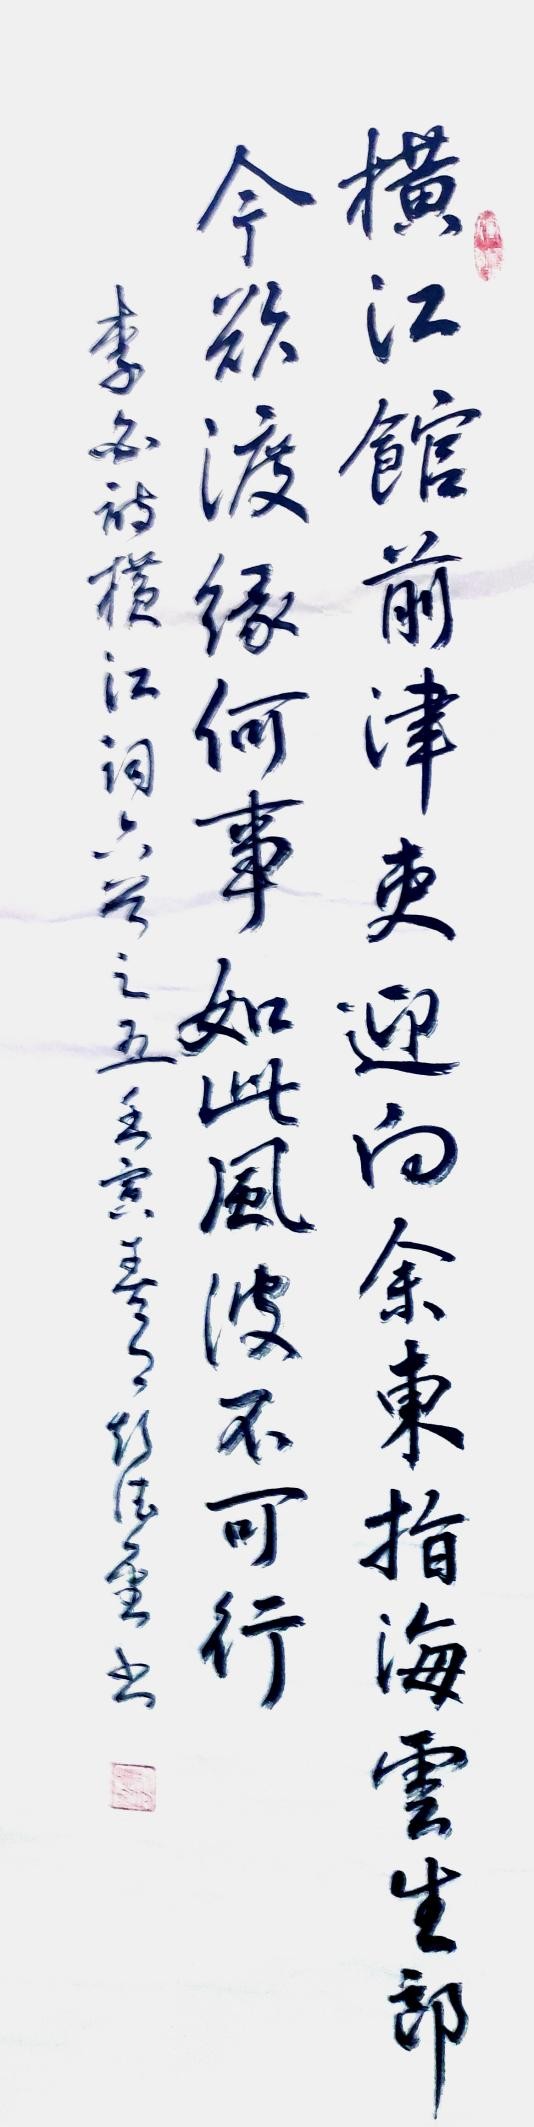 橫江館前津吏迎向余東指海雲生郎
今欲渡緣何事如此風波不可行
李白詩橫江詞六首之五壬寅春月德重书